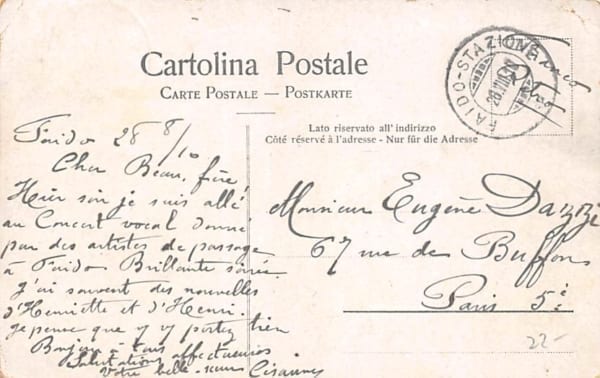 Cartolina Postale
CARTE POSTALE — POSTKARTE
Lato riservato all'indirizzo
Côté réservé à l'adresse - Nur für die Adresse
FAIDO-STAZIONE
28.VIII.10
Faido 28 8/10
Cher Beau, frère
Hier soir je suis allé
au Concert vocal donné
par des artistes de passage
à Faido Brillante soirée
J'ai souvent des nouvelles
d'Henriette et d'Henri.
je pense que v/ v/ portez bien
Bonjour à tous
Salutations affectueuses
Votre belle-soeur
Monsieur Eugène Dazzi
67 rue de Buffon
Paris 5e
22-